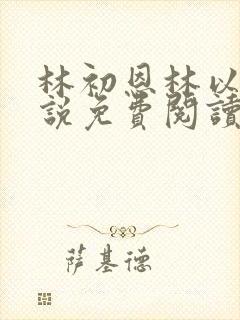 林初恩林以
說免費閱讀
萨基德